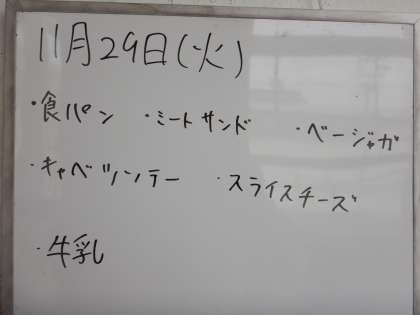 11月29日(火)
・食パン ・ミートサンド ・ベージャガ
・キャベツソテー ・スライスチーズ
・牛乳